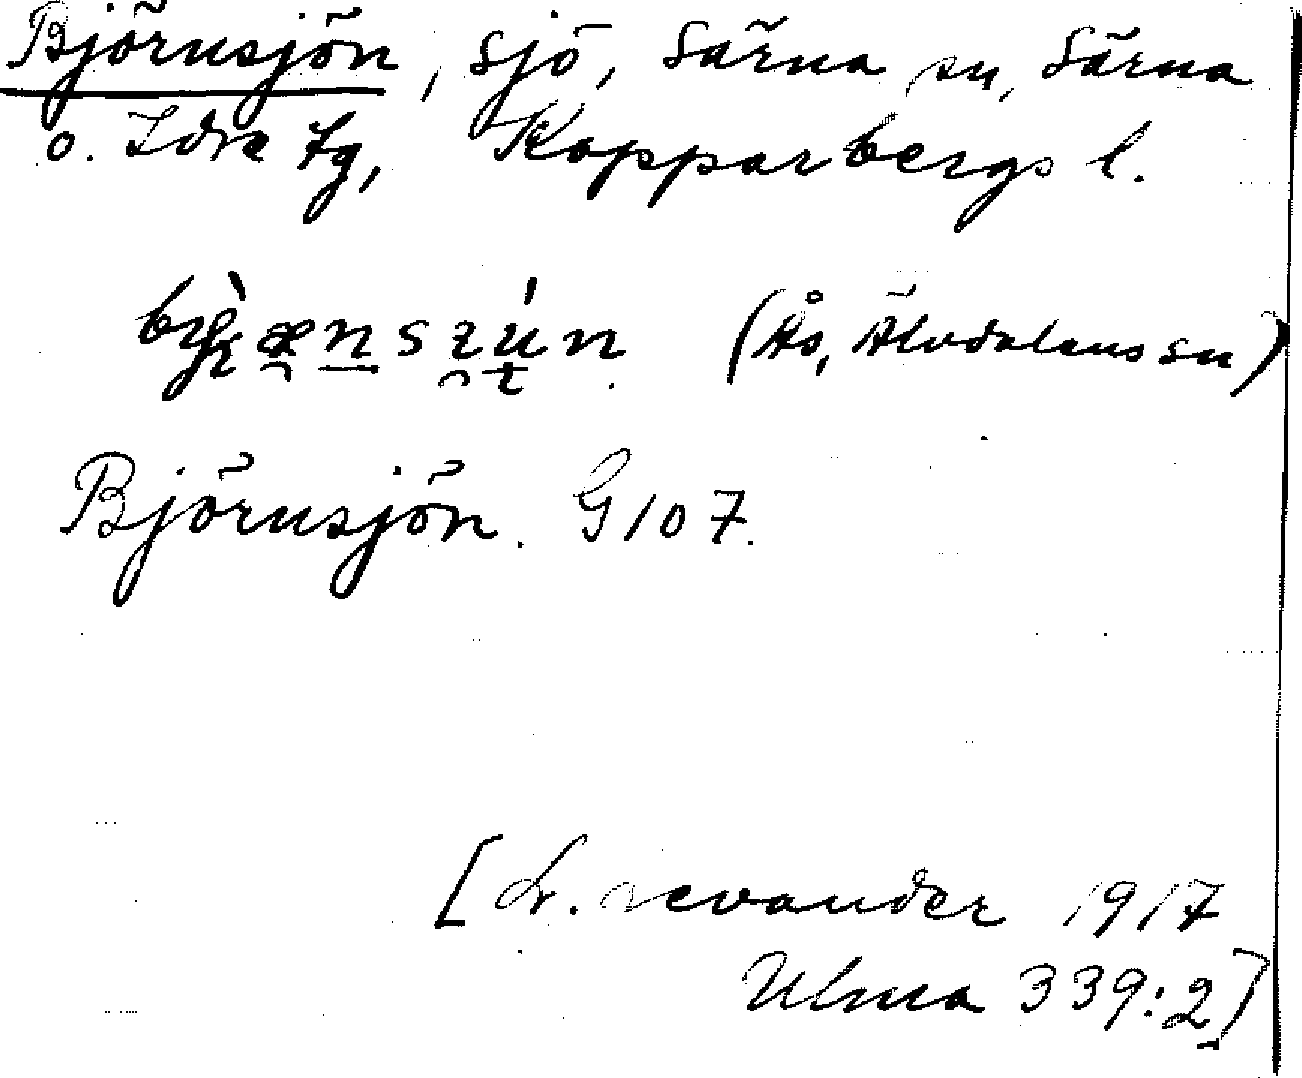 Björnsjön, sjö, Särna sn, Särna
o. Idre tg, Kopparbergs l.
(Ås, Älvdalens sn)
Björnsjön. G 107.
[Lr. Levander 1917
Ulma 339:2]